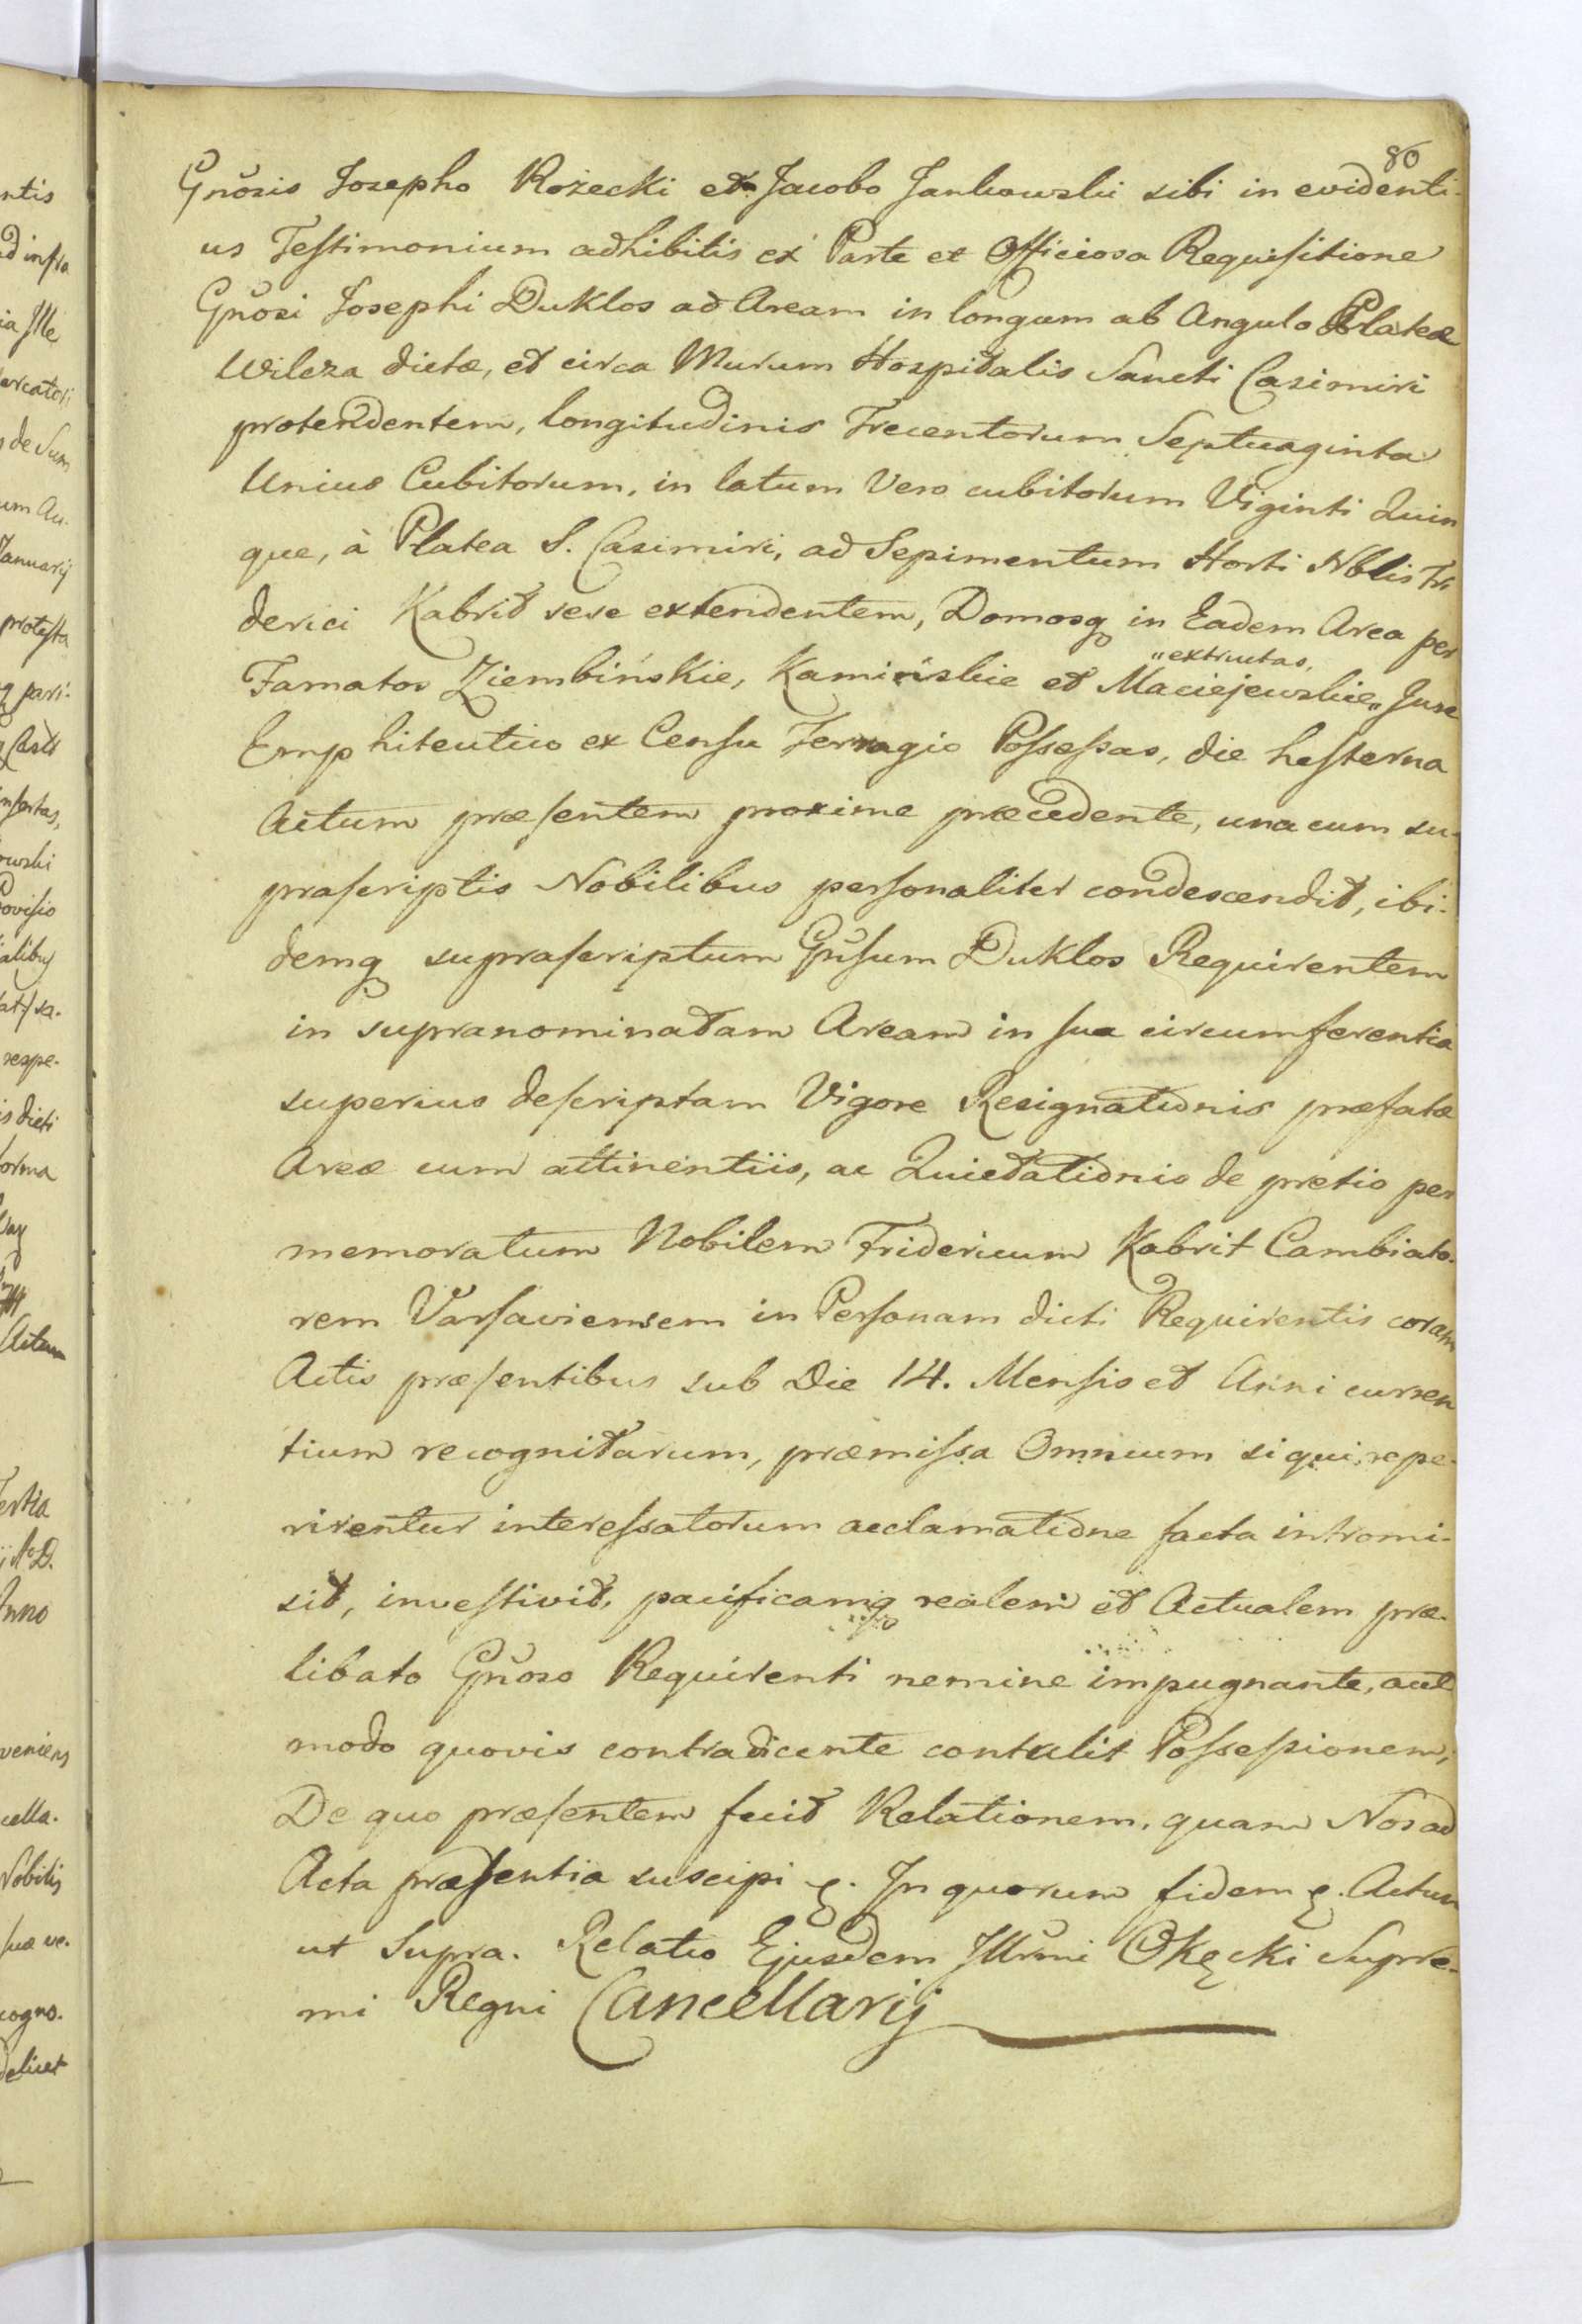 86
Gnõsis Josepho Rożecki et Jacobo Jankowski sibi in evidenti-
us Testimonium adhibitis ex Parte et Officiosa Requisitione
Gnõsi Josephi Duklos ad Aream in longum ab Angulo Plateæ
Wilcza dictæ, et circa Murum Hospitalis Sancti Casimiri
protendentem, longitudinis Trecentorum Septuaginta
Unius Cubitorum, in latum Vero cubitorum Viginti Quin
que, à Platea S. Casimiri, ad Sepimentum Horti Nblis Fri
derici Kabrit sese extendentem, Domosq in Eadem Area per
"extructas,
Famatos Ziembińskie, Kamińskie et Maciejewskie" Jure
Emphiteutico ex Censu Terragio Possessas, die hesterna
Actum præsentem proxime præcedente, una cum su-
prascriptis Nobilibus personaliter condescendit, ibi-
demq suprascriptum Gñsum Duklos Requirentem
in supranominatam Aream in sua circumferentia
superius descriptam Vigore Resignationis præfatæ
Areæ cum attinentiis, ac Quietationis de pretio per
memoratum Nobilem Fridericum Kabrit Cambiato-
rem Varsaviensem in Personam dicti Requirentis coram
Actis præsentibus sub Die 14. Mensis et Anni curren
tium recognitarum, præmissa Omnium si qui repe-
rirentur interessatorum acclamatione facta intromi-
sit, investivit, pacificamq realem et Actualem præ-
libato Gñoso Requirenti nemine impugnante, aut
modo quovis contradicente contulit Possessionem;
De quo præsentem fecit Relationem, quam Nos ad
Acta præsentia suscipi &. In quorum fidem &. Actum
ut Supra. Relatio Ejusdem Illrmi Okęcki Supre-
mi Regni Cancellarij